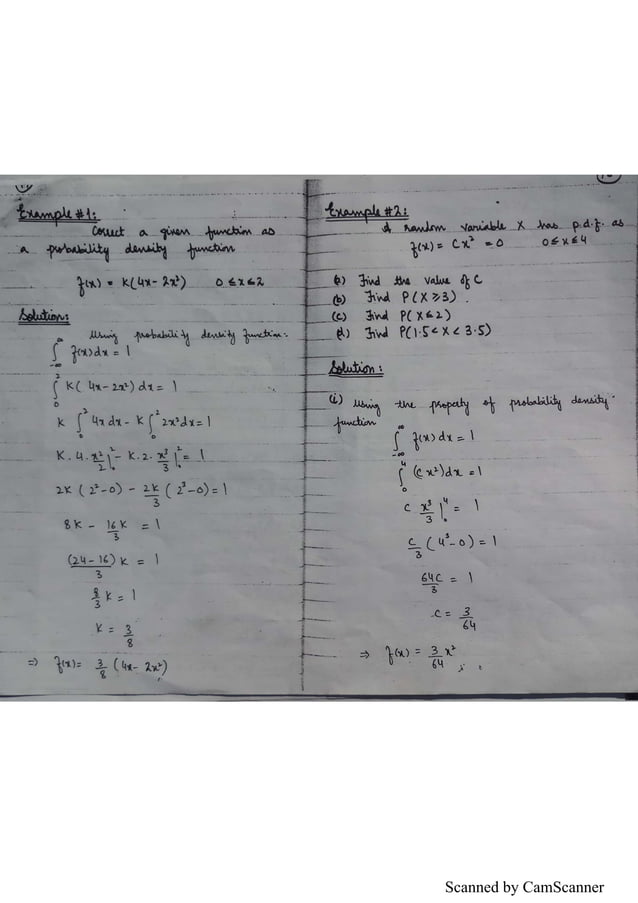 Example #1:
Correct a given function as
a probability density function
f(x) = K(4x - 2x²) 0 ≤ x ≤ 2
Solution:
Using probability density function:
∫_{-∞}^{∞} f(x) dx = 1
∫_0^2 K(4x - 2x²) dx = 1
K ∫_0^2 4x dx - K ∫_0^2 2x² dx = 1
K. 4. x²/2 |_0^2 - K. 2. x³/3 |_0^2 = 1
2K (2² - 0) - 2K/3 (2³ - 0) = 1
8K - 16K/3 = 1
(24 - 16)/3 K = 1
8/3 K = 1
K = 3/8
⇒ f(x) = 3/8 (4x - 2x²)
Example #2:
A random variable X has p.d.f. as
f(x) = Cx² = 0 0 ≤ x ≤ 4
(a) Find the value of C
(b) Find P(X ≥ 3).
(c) Find P(X ≤ 2)
(d) Find P(1.5 < X < 3.5)
Solution:
(i) Using the property of probability density
function
∫_{-∞}^{∞} f(x) dx = 1
∫_0^4 (C x²) dx = 1
C x³/3 |_0^4 = 1
C/3 (4³ - 0) = 1
64C/3 = 1
C = 3/64
⇒ f(x) = 3/64 x²
Scanned by CamScanner